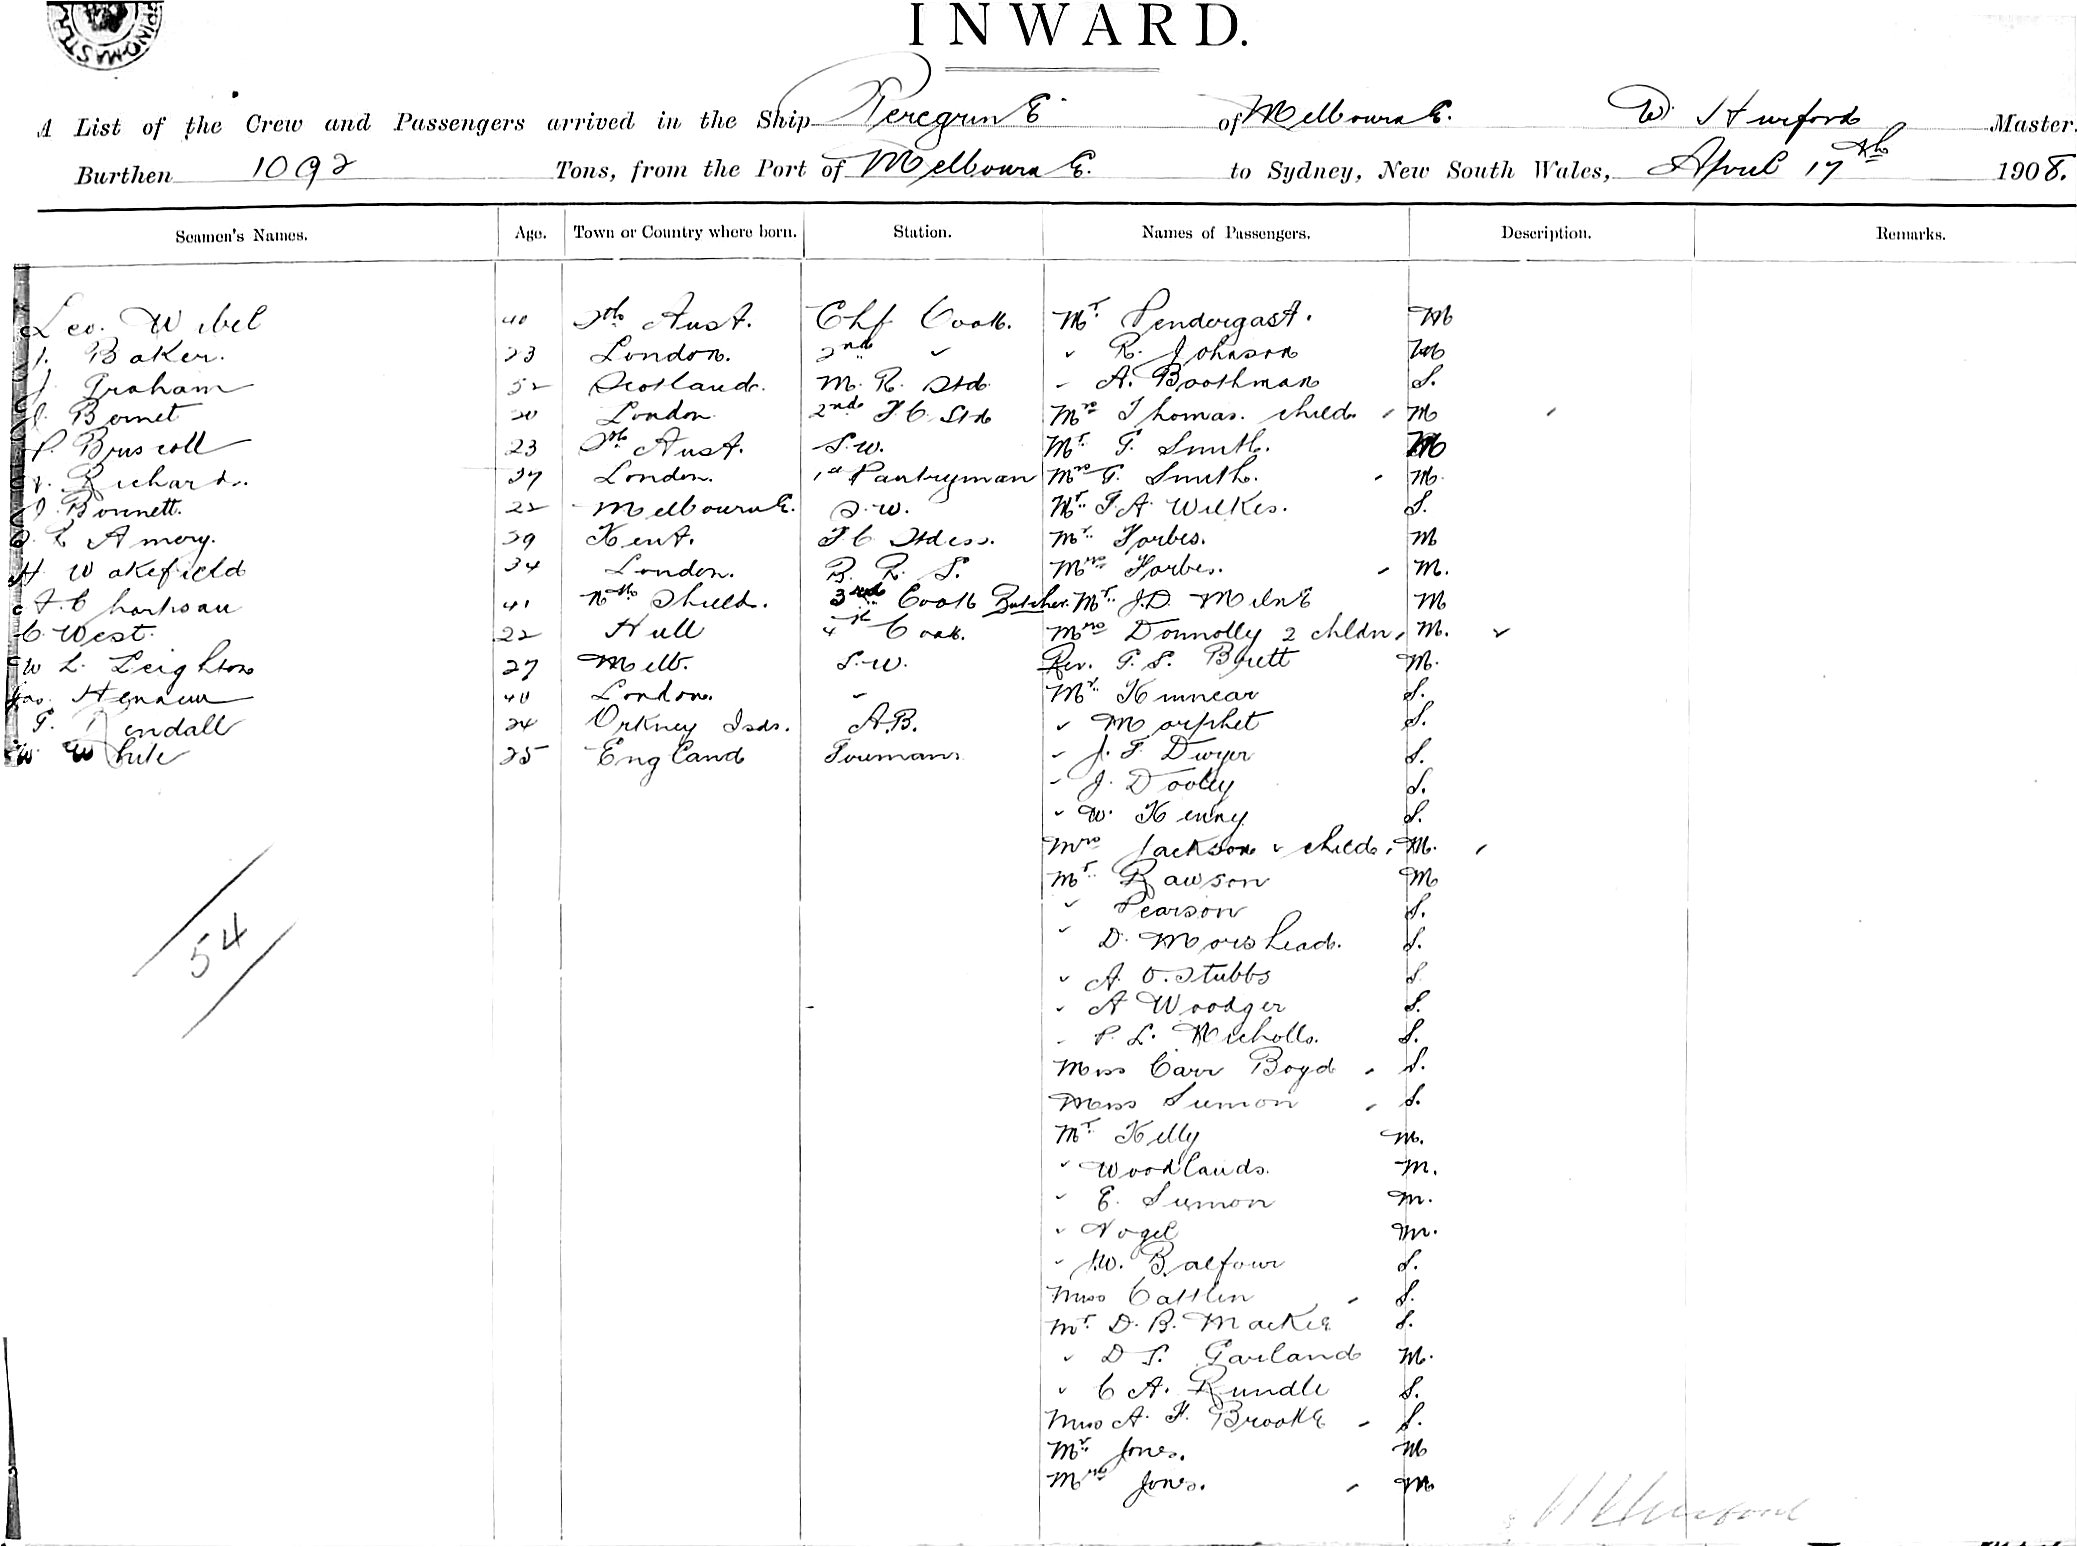 INWARD.
A List of the Crew and Passengers arrived in the Ship Peregrine of Melbourne. W Hurford Master.
Burthen 1092 Tons, from the Port of Melbourne. to Sydney, New South Wales, April 17th 1908.
Seamen's Names. Age. Town or Country where born. Station. Names of Passengers. Description. Remarks.
Leo. Wibel 40 Sth Aust. Chf Cook. Mr Pendergast. M
Baker. 23 London. 2nd " " R. Johnson M
J. Graham 52 Scotland. M. R. Std " A. Boothman S.
J. Bornet 20 London 2nd F C Std Mrs Thomas. child M
P. Briscoll 23 Sth Aust. S.W. Mr G. Smith. M
Richards. 37 London. 1st Pantryman Mrs G. Smith. M.
J. Bonnett. 22 Melbourne. S.W. Mr G.A. Wilkes. S.
Amery. 39 Kent. F C Stdess. Mr Forbes. M
H. Wakefield 34 London. B. R. S. Mrs Forbes. M.
41 Nth Shield. 3rd Cook Butcher. Mr J.D. Milne M
C. West. 22 Hull 4th Cook. Mrs Donnolly 2 chldn, M.
W L. Leighton 27 Melb. S.W. Rev. G. S. Brett M.
Jas. 40 London. " Mr Kinnear S.
G. Rendall 24 Orkney Isds. A.B. " Morphet S.
W. White 25 England " J. G. Dwyer S.
" J. Dooley S.
" W. Kenny S.
Mrs Jackson & child, M.
Mr Rawson M
" Pearson S.
" D. Morshead. S.
" A. O. Stubbs S
" A Woodger S.
" P. L. Nicholls. S.
Miss Carr Boyd S.
Miss Simon S.
Mr Kelly M.
" Woodlands. M.
" E. Simon M.
" Vogel M.
" W. Balfour S.
Miss Cattlin S.
Mr D. B. Mackie S.
" D S. Garland M.
" C A. Rundle S.
Miss A. H. Brooke S.
Mr Jones. M
Mrs Jones. M
54
Hurford